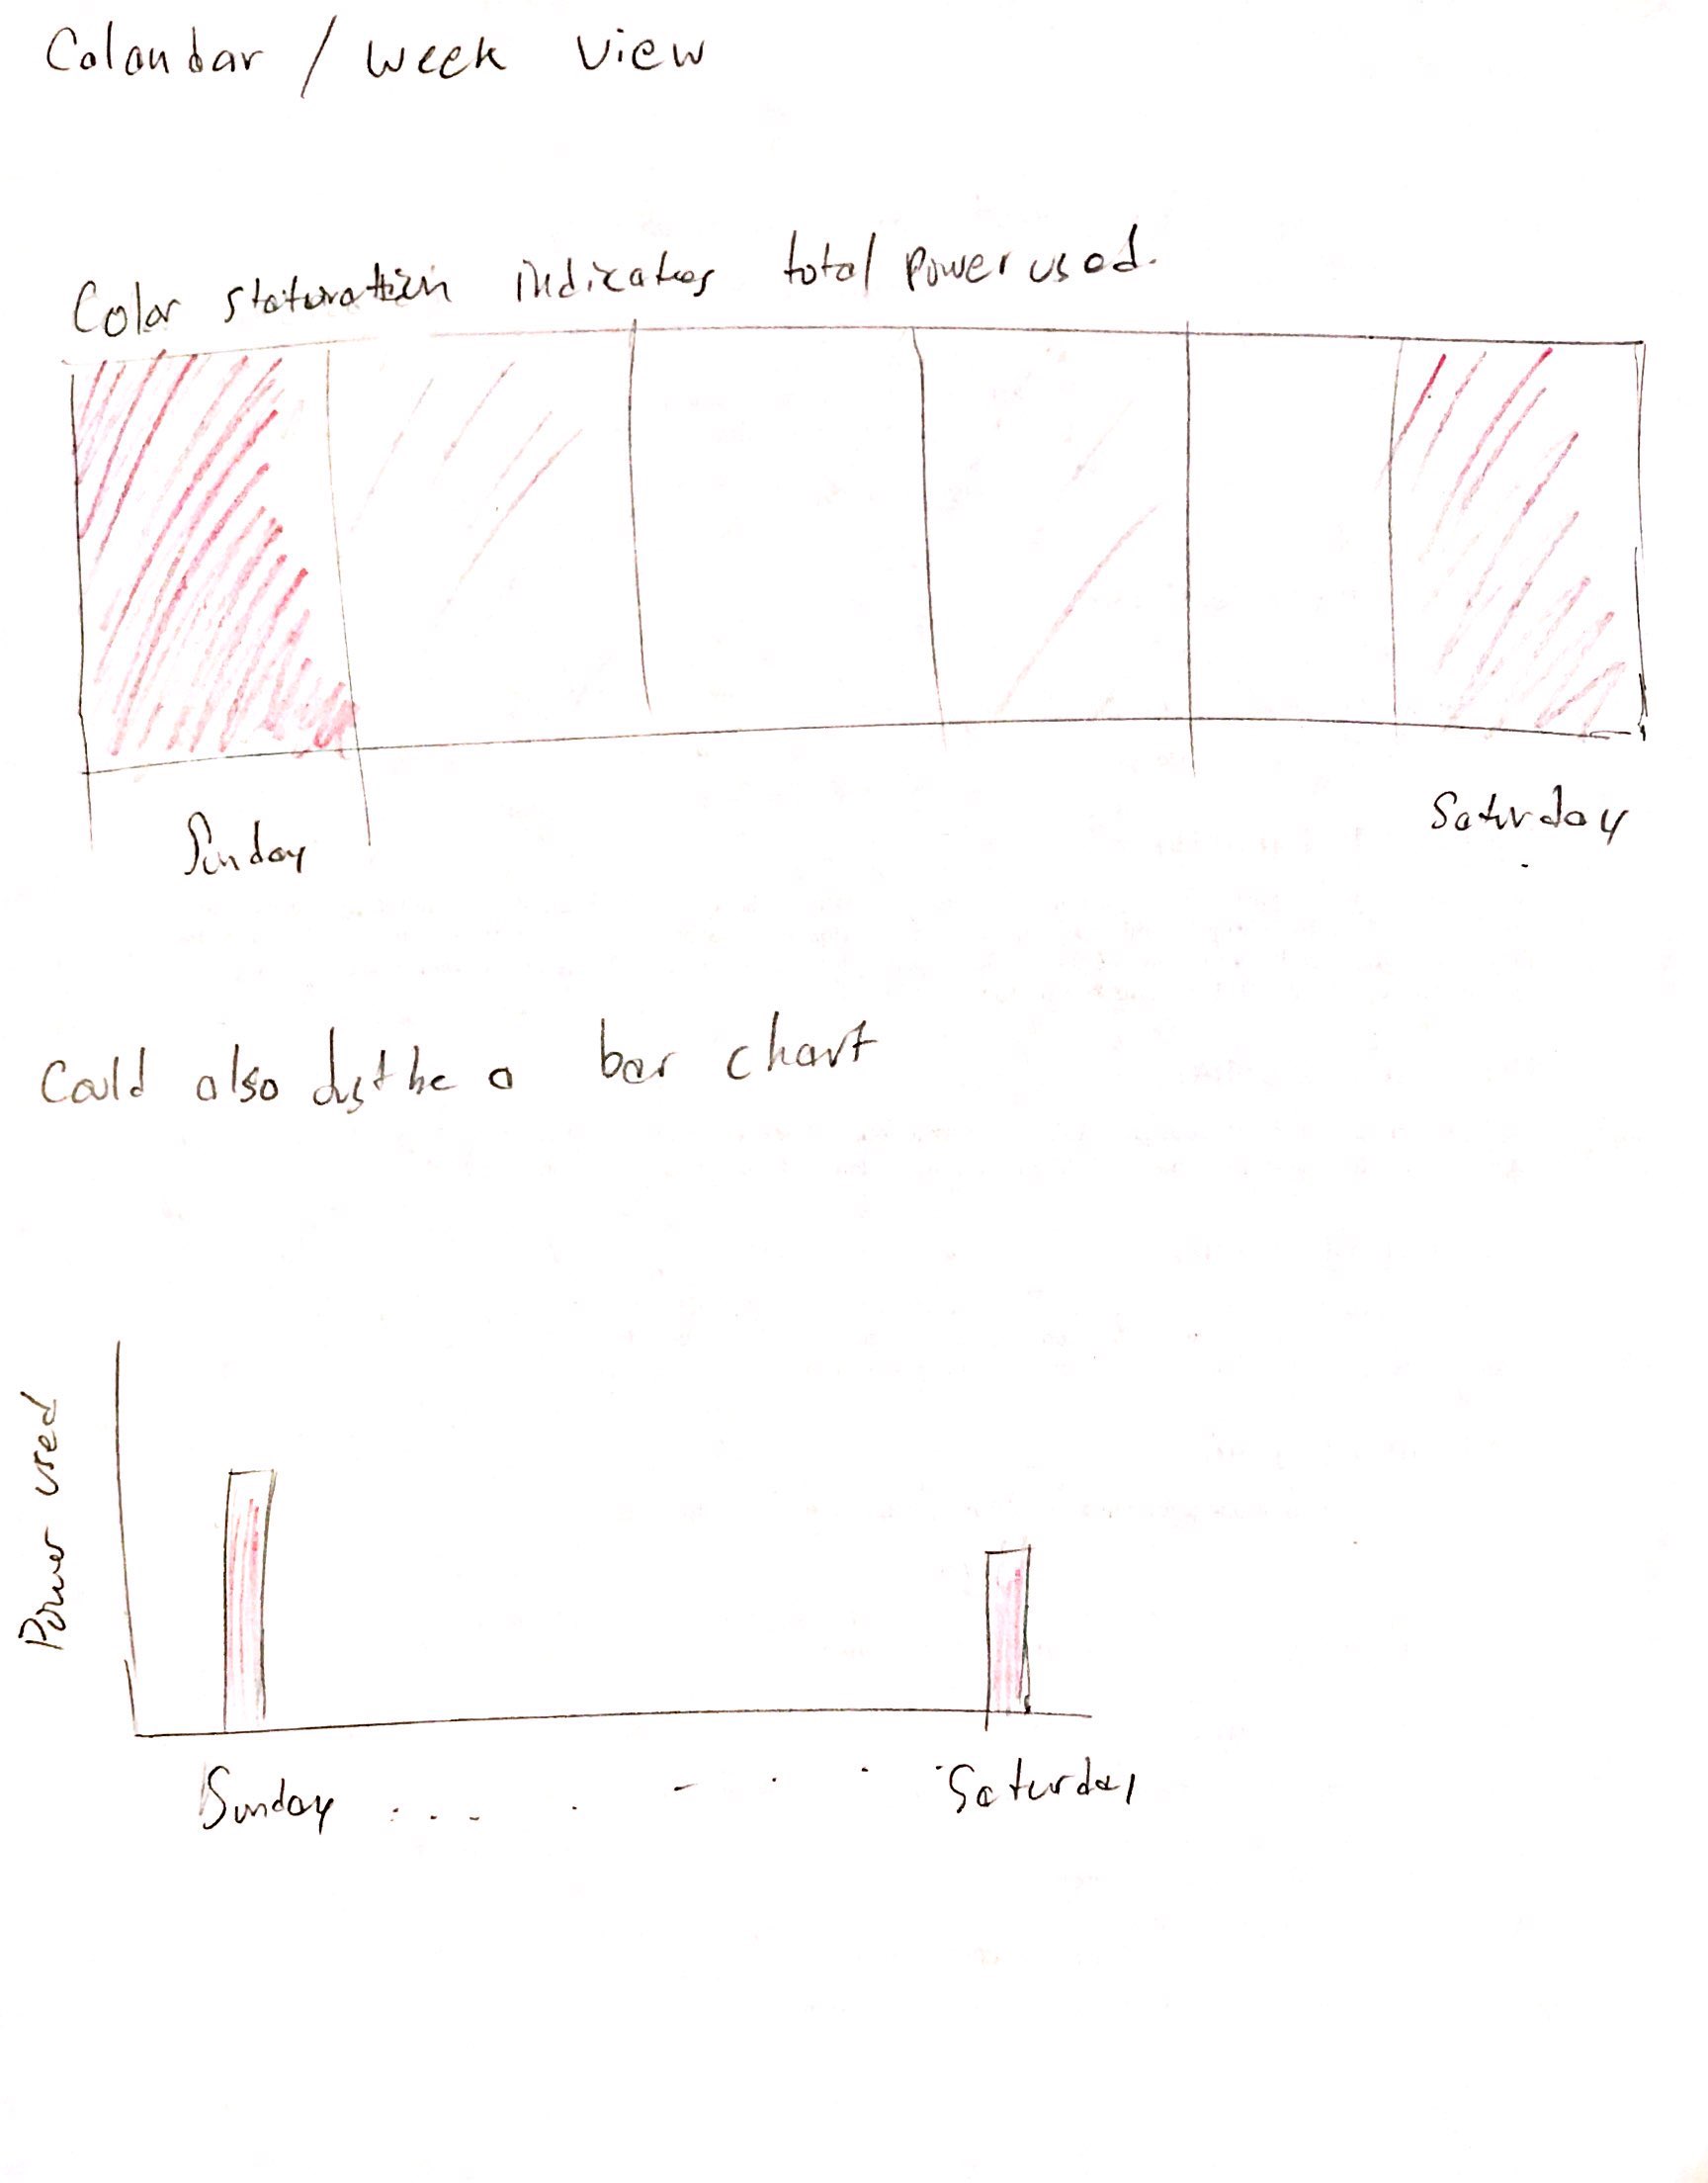 Calandar / week view
Color staturation indicates total power used.
Sunday
Saturday
Could also just be a bar chart
Power used
Sunday
Saturday